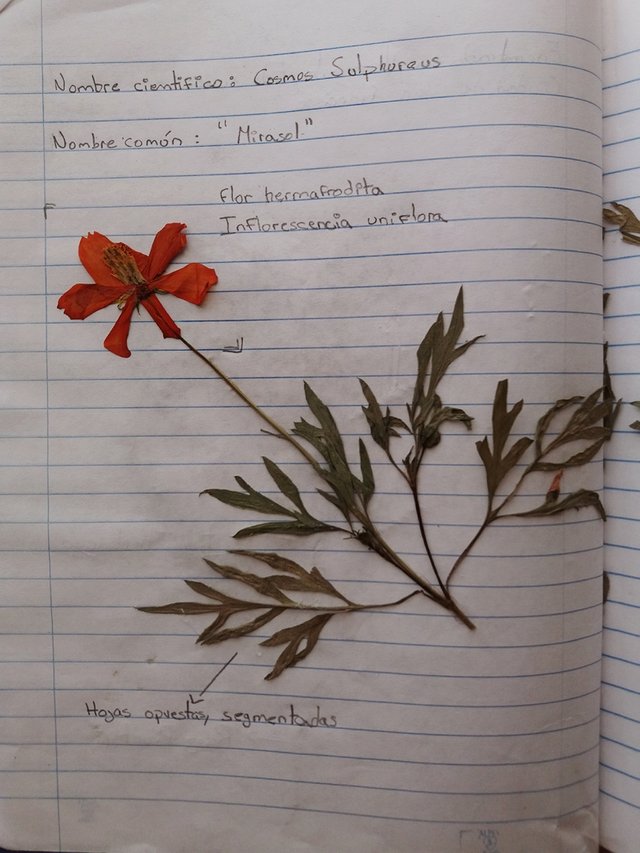 Nombre cientifico: Cosmos Sulphureus
Nombre común: "Mirasol"
flor hermafrodita
Inflorescencia uniflora
Hojas opuestas, segmentadas